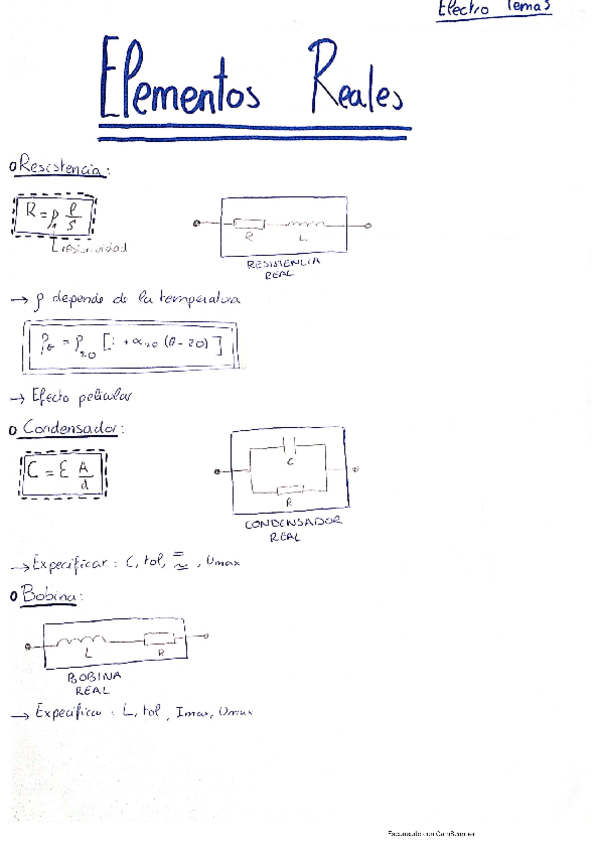 Electro Temas
Elementos Reales
o Resistencia:
R = ρ ℓ/S
resistividad
R L
RESISTENCIA
REAL
→ ρ depende de la temperatura
ρθ = ρ20 [1 + α20 (θ - 20)]
→ Efecto pelicular
o Condensador:
C = ε A/d
C
R
CONDENSADOR
REAL
→ Expecificar: C, tol, , Umax
o Bobina:
L R
BOBINA
REAL
→ Expecificar: L, tol, Imax, Umax
Escaneado con CamScanner